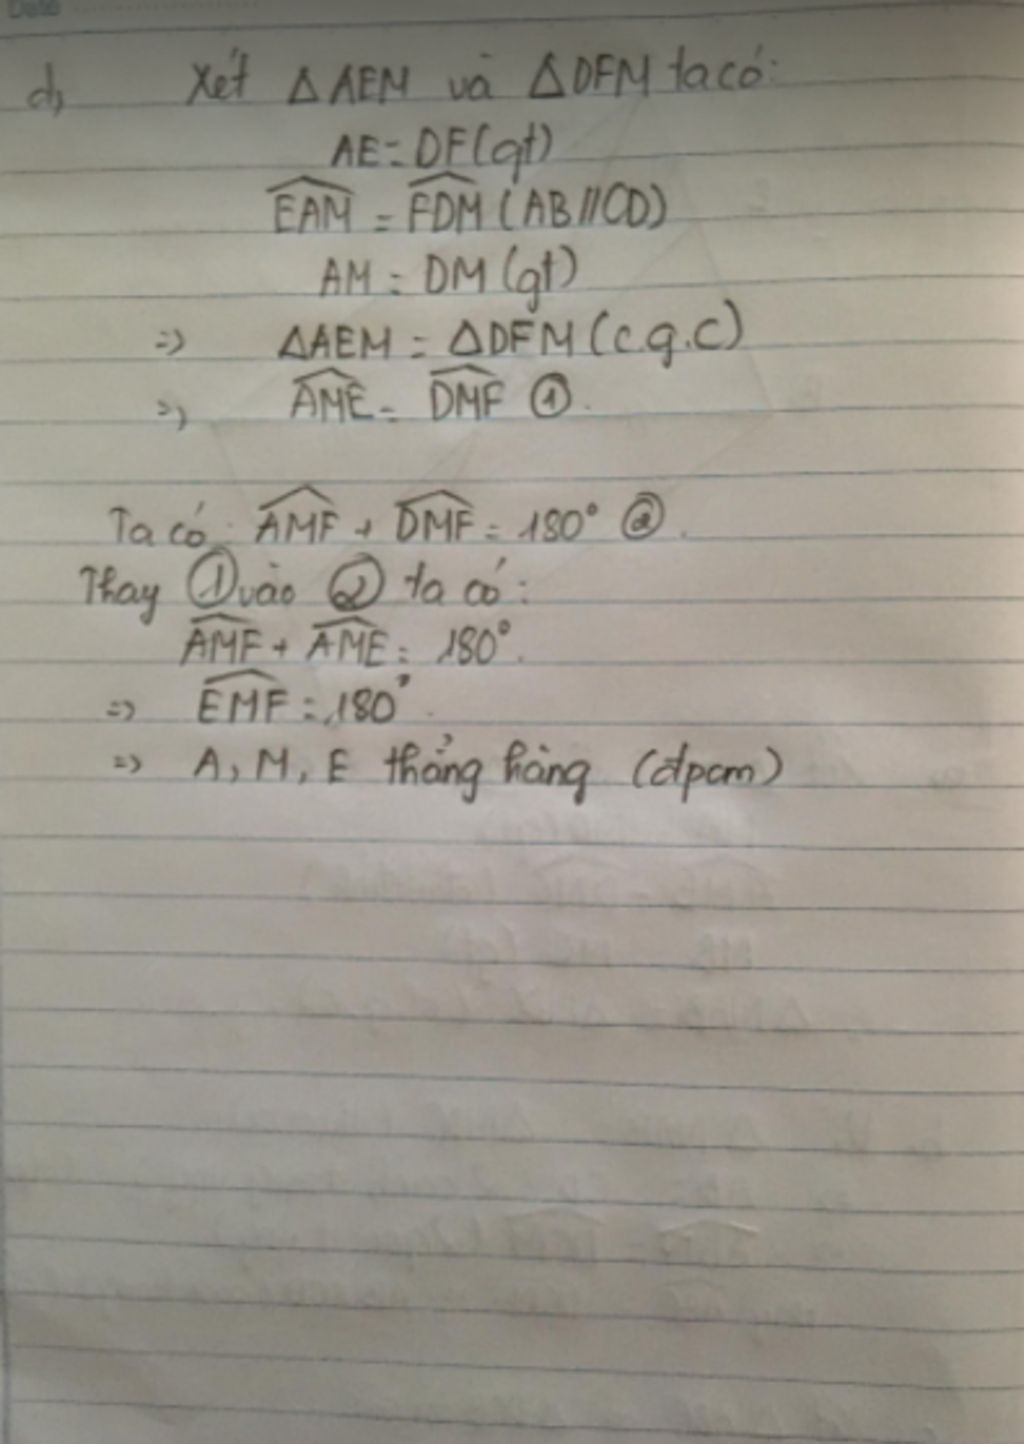 Date
d, Xét ΔAEM và ΔDFM ta có:
AE = DF (gt)
\widehat{EAM} = \widehat{FDM} (AB//CD)
AM = DM (gt)
=> ΔAEM = ΔDFM (c.g.c)
=> \widehat{AME} = \widehat{DMF} ①.
Ta có: \widehat{AMF} + \widehat{DMF} = 180° ②.
Thay ① vào ② ta có:
\widehat{AMF} + \widehat{AME} = 180°.
=> \widehat{EMF} = 180°.
=> A, M, E thẳng hàng (đpcm)